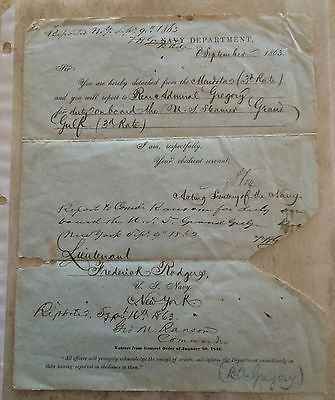 Reported N.Y. Sept. 9th 1863
NAVY DEPARTMENT,
8 September 1863.
Sir
You are hereby detached from the (3d Rate)
and you will report to Rear Admiral Gregory
for duty on board the U.S. Steamer Grand
Gulf (3d Rate)
I am, respectfully,
Your obedient servant,
Acting Secretary of the Navy
Report to Comdr Ranson for duty on
board the U.S.S. Grand Gulf
New York Sept 9th 1863
Lieutenant
Frederick Rodgers,
U. S. Navy.
New York
Reported Sept 16th 1863
Geo M Ranson
Commander
Extract from General Order of January 30,
"All officers will promptly acknowledge the receipt of orders, and inform the Department immediately on
their having reported in obedience to them."
Gregory)